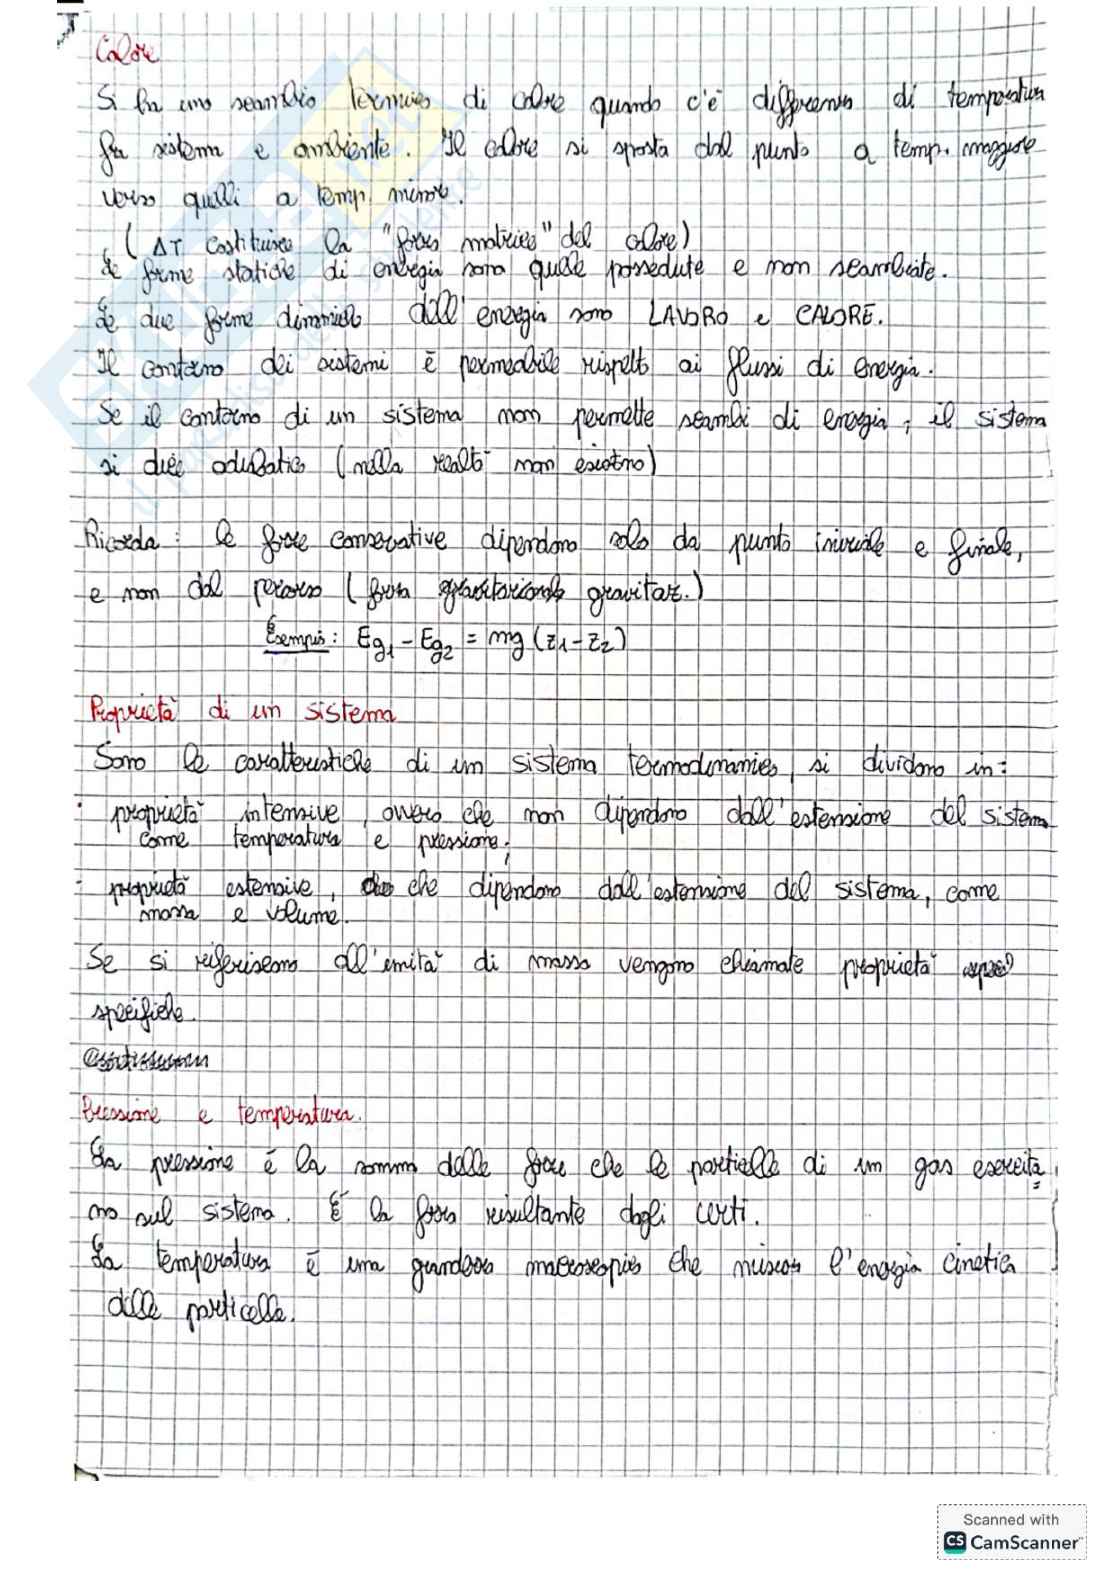 Calore
Si ha uno scambio termico di calore quando c'è differenza di temperatura
fra sistema e ambiente. Il calore si sposta dal punto a temp. maggiore
verso quelli a temp. minore.
(ΔT costituisce la "forza motrice" del calore)
Le forme statiche di energia sono quelle possedute e non scambiate.
Le due forme dinamiche dell'energia sono LAVORO e CALORE.
Il contorno dei sistemi è permeabile rispetto ai flussi di energia.
Se il contorno di un sistema non permette scambi di energia, il sistema
si dice adiabatico (nella realtà non esistono)
Ricorda: le forze conservative dipendono solo da punto iniziale e finale,
e non dal percorso (forza gravitaz.)
Esempio: Eg1 - Eg2 = mg (z1-z2)
Proprietà di un sistema
Sono le caratteristiche di un sistema termodinamico, si dividono in:
· proprietà intensive, ovvero che non dipendono dall'estensione del sistema
come temperatura e pressione;
- proprietà estensive, che dipendono dall'estensione del sistema, come
massa e volume.
Se si riferiscono all'unità di massa vengono chiamate proprietà
specifiche.
Pressione e temperatura.
La pressione è la somma delle forze che le particelle di un gas esercita
no sul sistema. È la forza risultante dagli urti.
La temperatura è una grandezza macroscopica che misura l'energia cinetica
delle particelle.
Scanned with
CS CamScanner